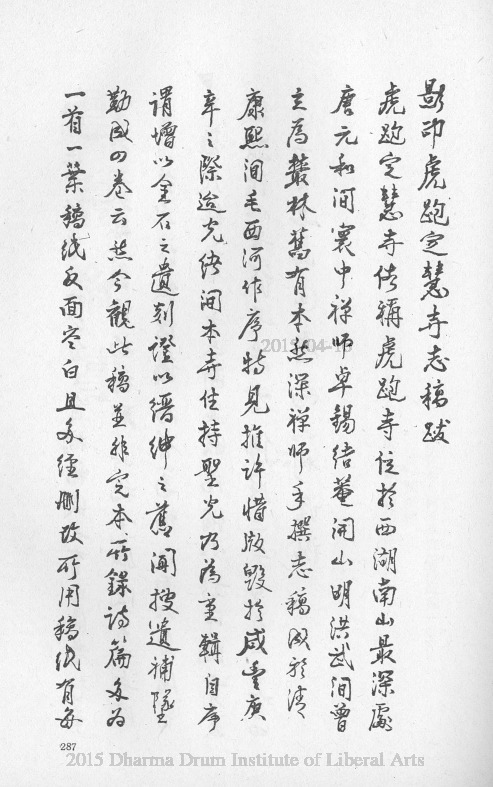 影印虎跑定慧寺志稿跋
虎跑定慧寺俗稱虎跑寺位於西湖南山最深處
唐元和间寰中禪師卓錫结菴開山明洪武间曾
主為叢林舊有本然深禪師手撰志稿成於清
康熙间毛西河作序特見推许惜版毁於咸豐庚
辛之際迨光緒间本寺住持聖光乃為重輯自序
谓增以金石之遺刻證以缙绅之舊闻搜遺補墜
勒成四卷云然今觀此稿並非完本所錄诗篇多为
一首一葉稿纸反面空白且多经删改所用稿纸有每
287
2015-04-15
2015 Dharma Drum Institute of Liberal Arts